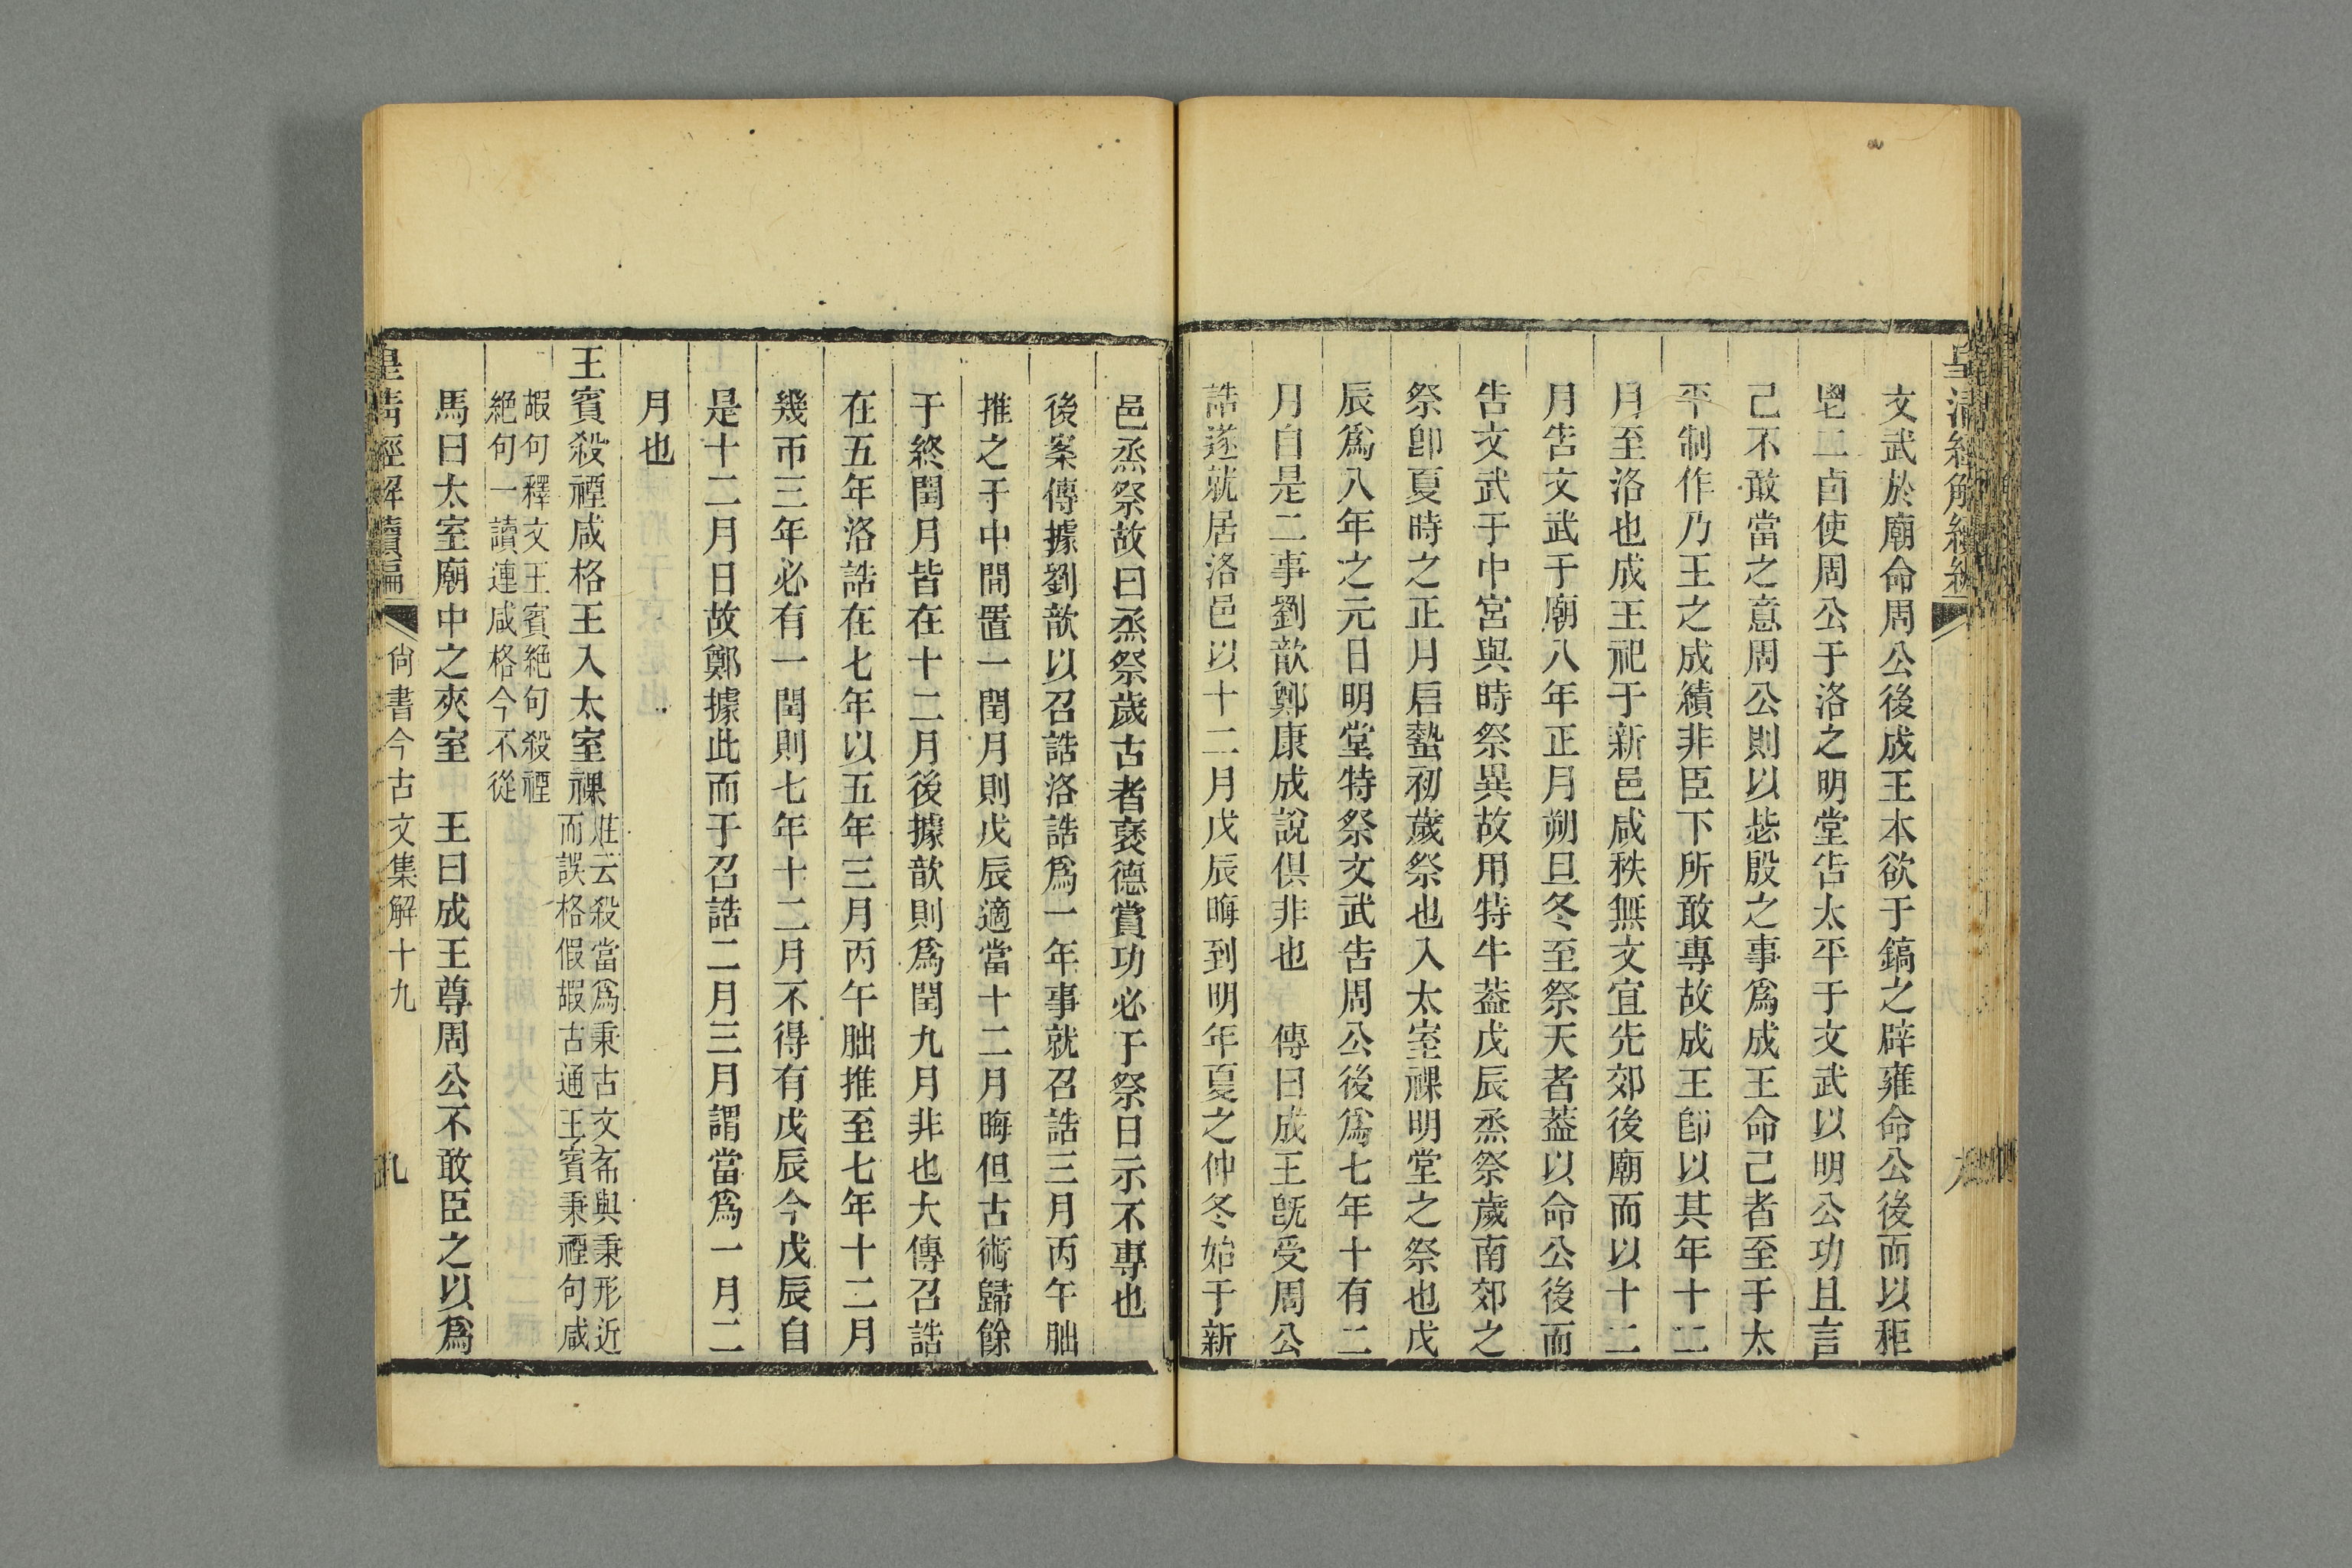 皇清經解續編
文武於廟命周公後成王本欲于鎬之辟雍命公後而以秬
鬯二卣使周公于洛之明堂告太平于文武以明公功且言
己不敢當之意周公則以毖殷之事爲成王命己者至于太
平制作乃王之成績非臣下所敢專故成王卽以其年十二
月至洛也成王祀于新邑咸秩無文宜先郊後廟而以十二
月告文武于廟八年正月朔旦冬至祭天者葢以命公後而
告文武于中宮與時祭異故用特牛葢戊辰烝祭歲南郊之
祭卽夏時之正月启蟄初歲祭也入太室祼明堂之祭也戊
辰爲八年之元日明堂特祭文武告周公後爲七年十有二
月自是二事劉歆鄭康成說俱非也　傳曰成王旣受周公
誥遂就居洛邑以十二月戊辰晦到明年夏之仲冬始于新
邑烝祭故曰烝祭歲古者襃德賞功必于祭日示不專也
後案傳據劉歆以召誥洛誥爲一年事就召誥三月丙午朏
推之于中閒置一閏月則戊辰適當十二月晦但古術歸餘
于終閏月皆在十二月後據歆則爲閏九月非也大傳召誥
在五年洛誥在七年以五年三月丙午朏推至七年十二月
幾帀三年必有一閏則七年十二月不得有戊辰今戊辰自
是十二月日故鄭據此而于召誥二月三月謂當爲一月二
月也
王賓殺禋咸格王入太室祼
莊云殺當爲秉古文㣇與秉形近
而誤格假嘏古通王賓秉禋句咸
嘏句釋文王賓絕句殺禋
絕句一讀連咸格今不從
馬曰太室廟中之夾室　王曰成王尊周公不敢臣之以爲
皇清經解續編　尙書今古文集解十九　九